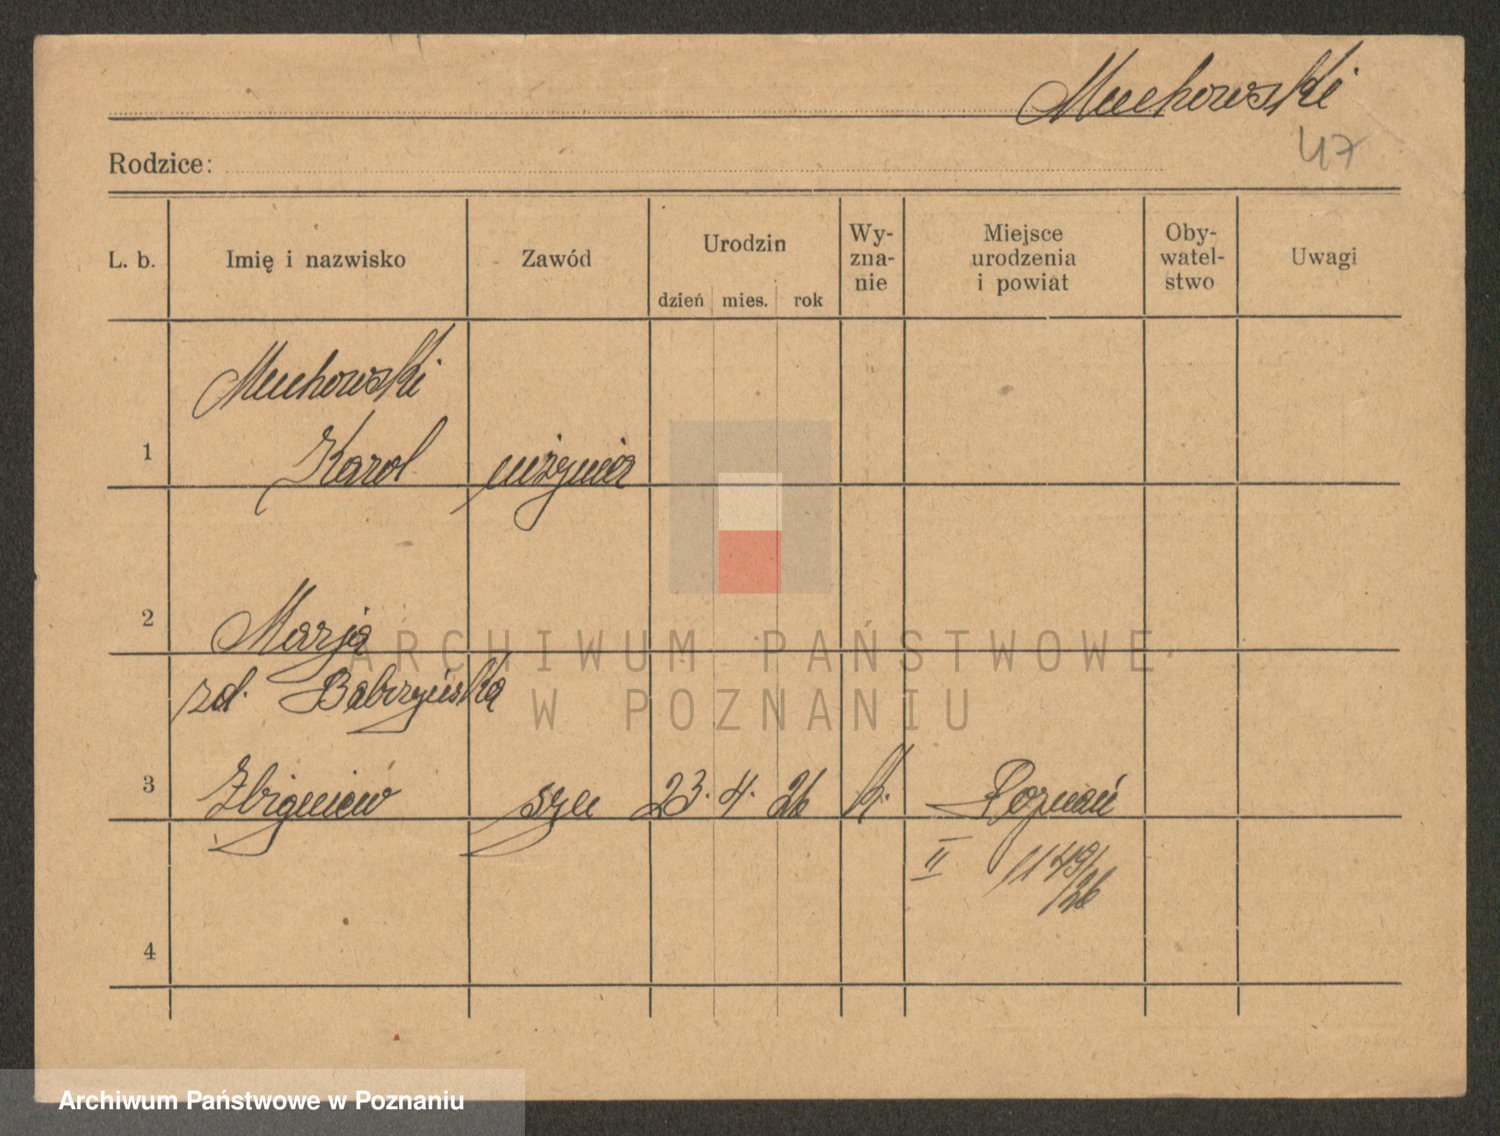 Muchowski
47
Rodzice:
L. b.
Imię i nazwisko
Zawód
Urodzin
dzień mies. rok
Wy-
zna-
nie
Miejsce
urodzenia
i powiat
Oby-
watel-
stwo
Uwagi
Muchowski
1 Karol inżynier
2 Marja
zd.
3 Zbigniew 23. 4. 26 k. Poznań
II 1149/26
4
ARCHIWUM PAŃSTWOWE
W POZNANIU
Archiwum Państwowe w Poznaniu